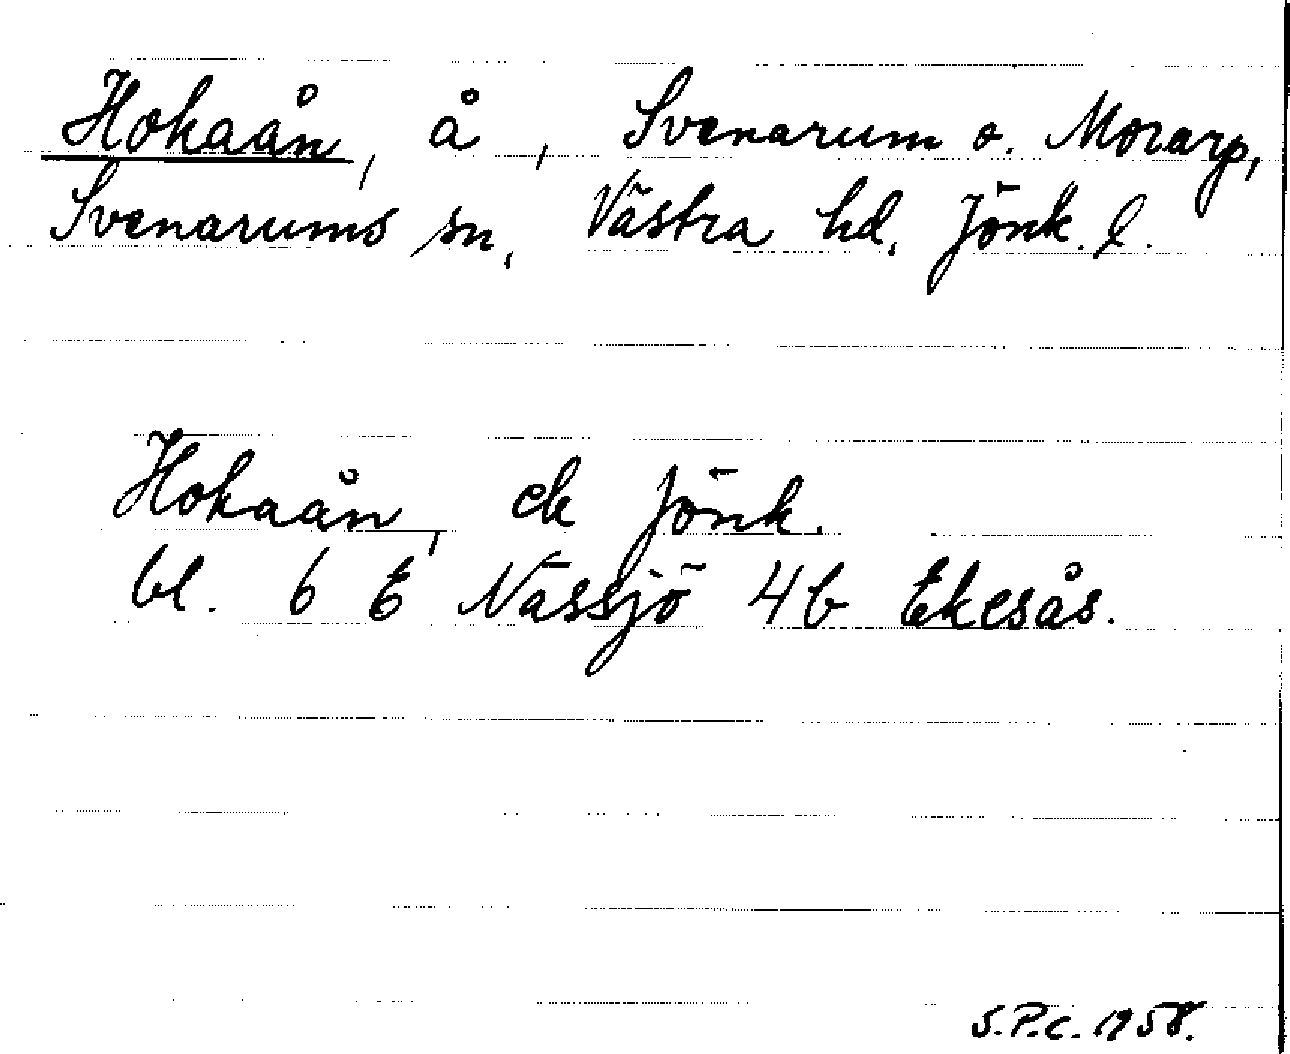 Hokaån, å, Svenarum o. Morarp,
Svenarums sn, Västra hd, Jönk. l.
Hokaån, ek Jönk.
bl. 6 E Nässjö 4b Ekesås.
S.P.C. 1958.